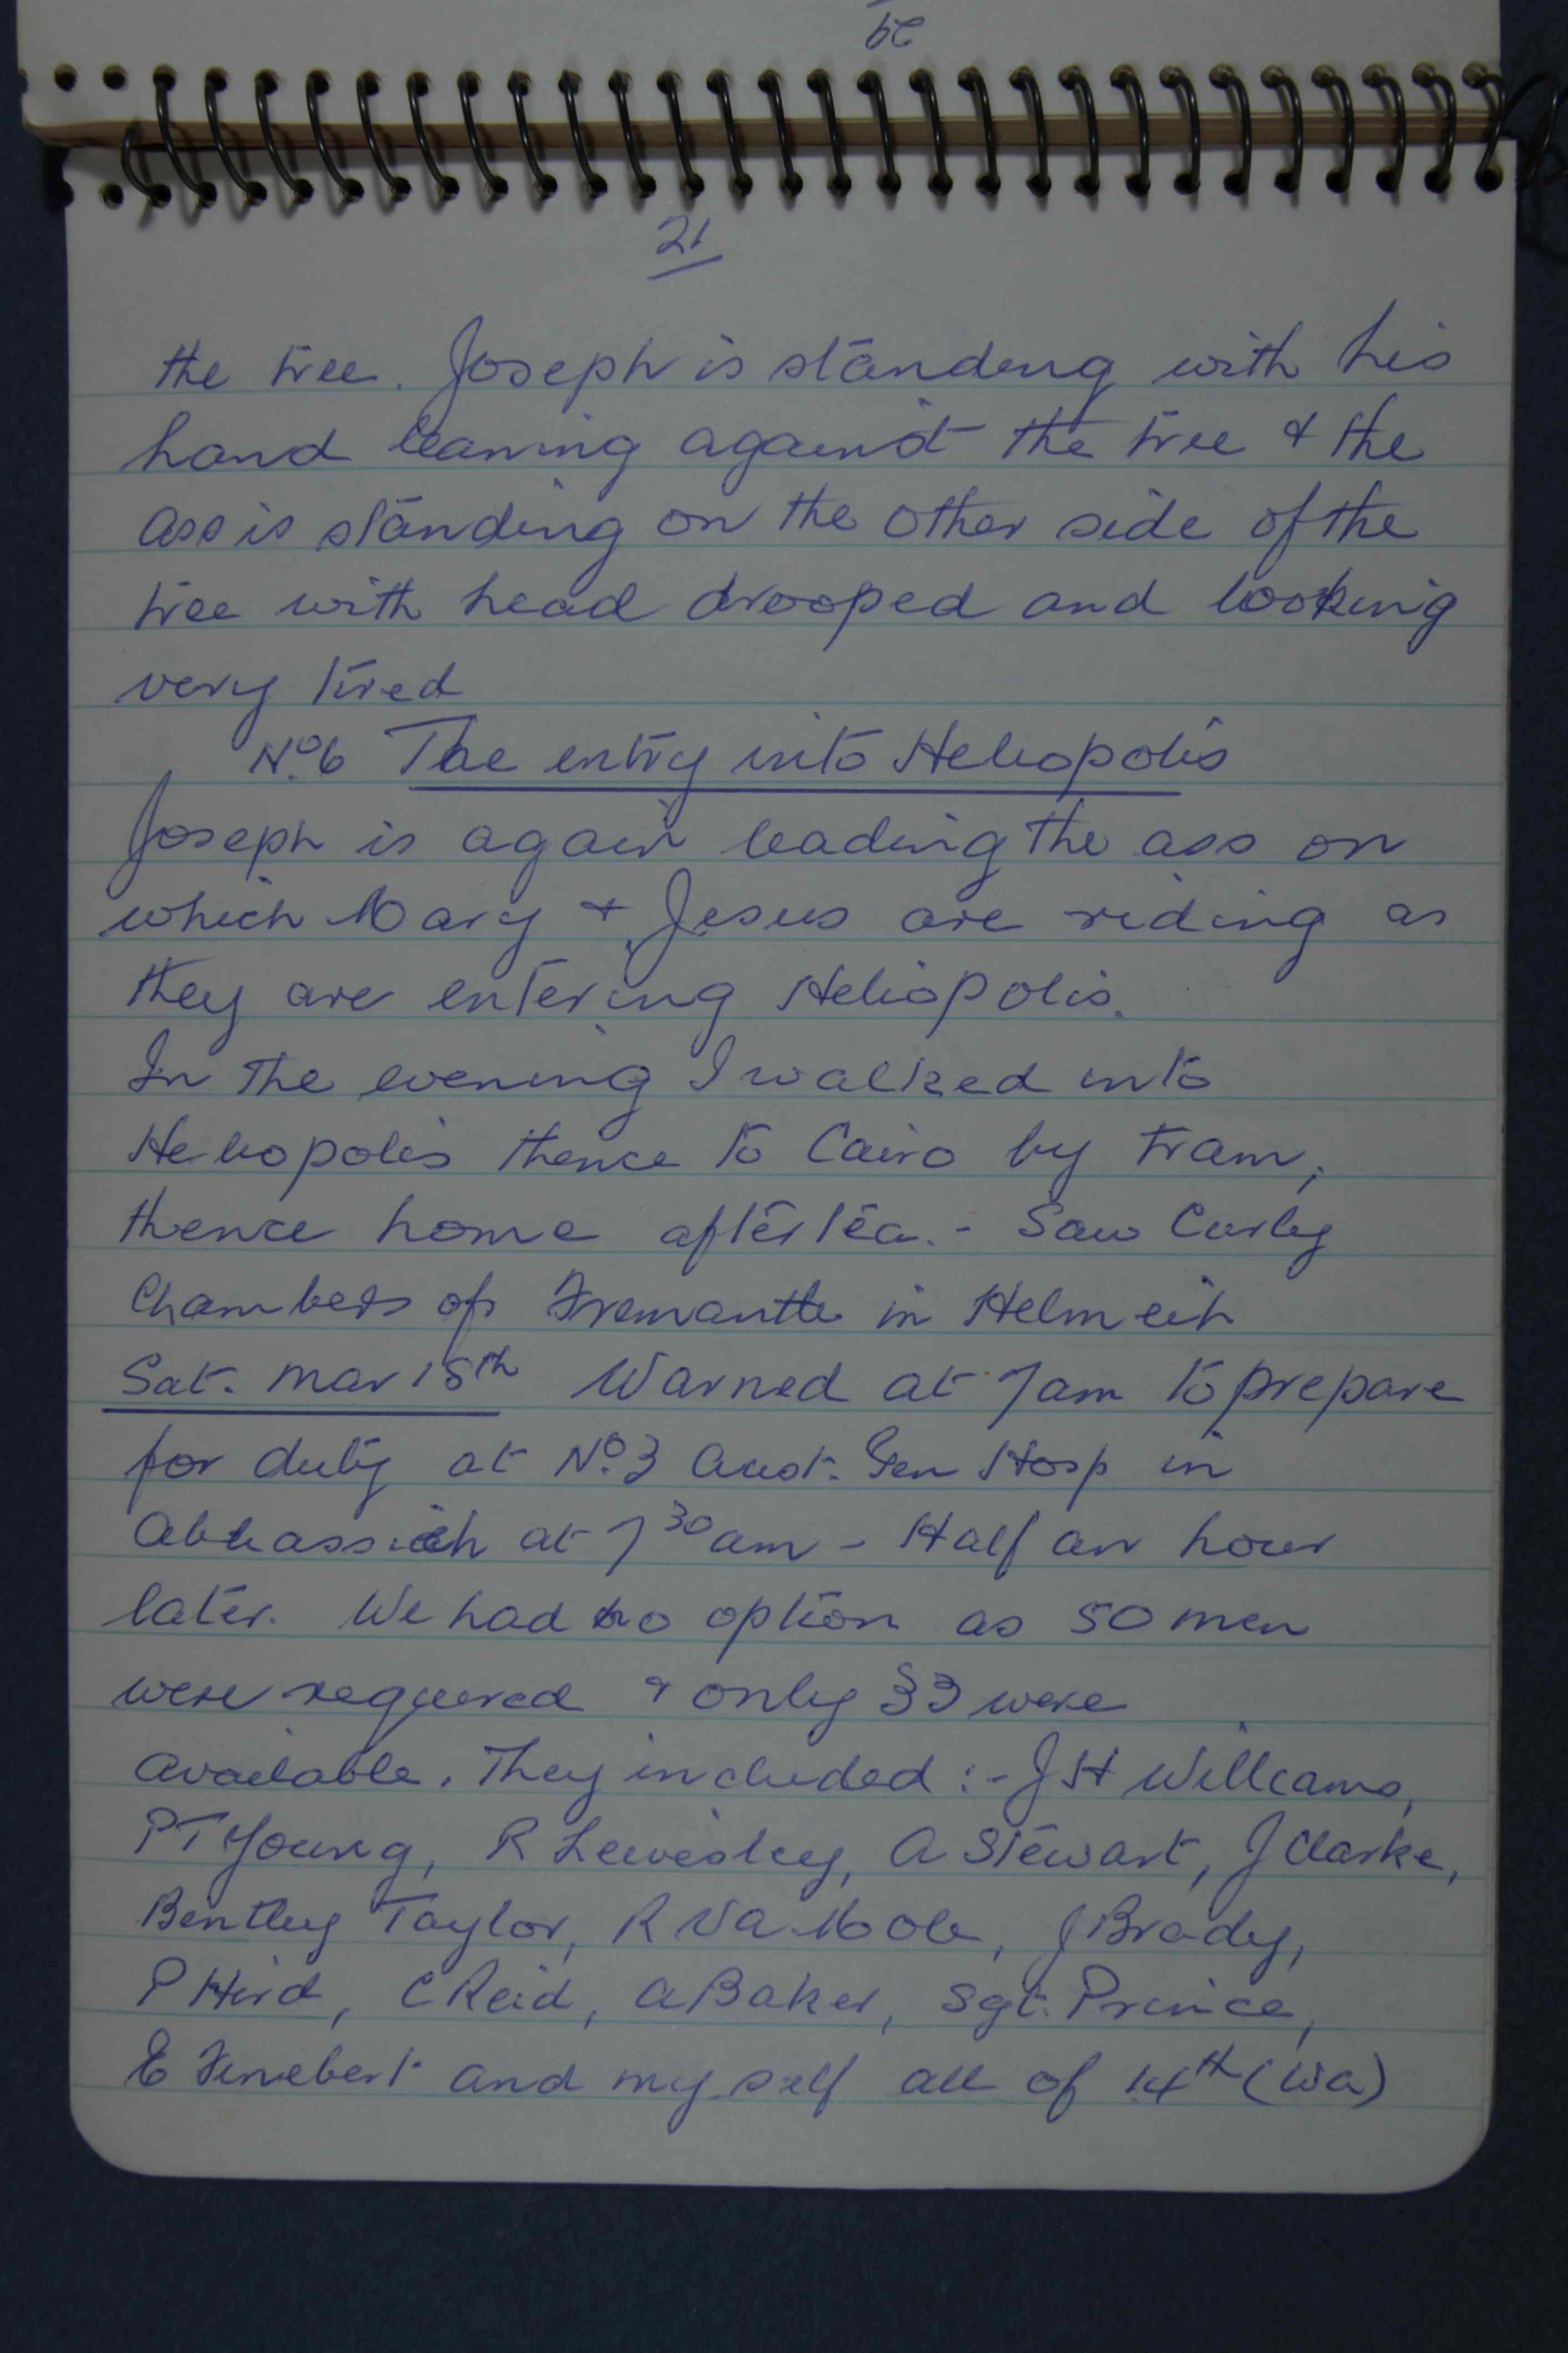 21
the tree. Joseph is standing with his
hand leaning against the tree & the
ass is standing on the other side of the
tree with head drooped and looking
very tired
No. 6 The entry into Heliopolis
Joseph is again leading the ass on
which Mary & Jesus are riding as
they are entering Heliopolis.
In the evening I walked into
Heliopolis thence to Cairo by tram,
thence home after tea. - Saw Curley
Chambers of Fremantle in Helmeih
Sat. Mar 18th Warned at 7am to prepare
for duty at No. 3 Aust. Gen Hosp in
Abbassieh at 7 30 am - Half an hour
later. We had no option as 50 men
were required & only 33 were
available. They included :- J H Williams,
P T Young, R Lewisley, A Stewart, J Clarke,
Bentley Taylor, R V A Mole, J Brady,
P Hird, C Reid, A Baker, Sgt. Prince,
E and myself all of 14th (WA)